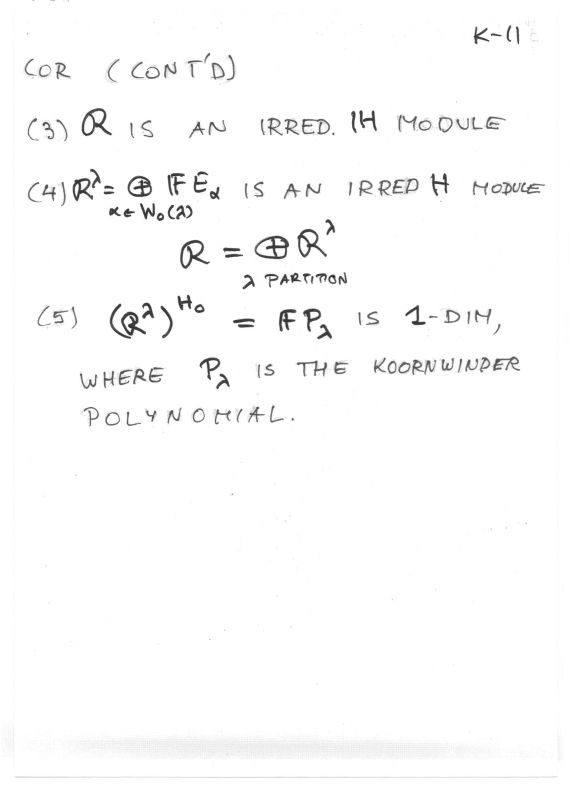 K-11
COR (CONT'D)
(3) R IS AN IRRED. ℍ MODULE
(4) R^λ = ⊕ 𝔽 E_α IS AN IRRED H MODULE
α ∈ W₀(λ)
R = ⊕ R^λ
λ PARTITION
(5) (R^λ)^H₀ = 𝔽 P_λ IS 1-DIM,
WHERE P_λ IS THE KOORNWINDER
POLYNOMIAL.